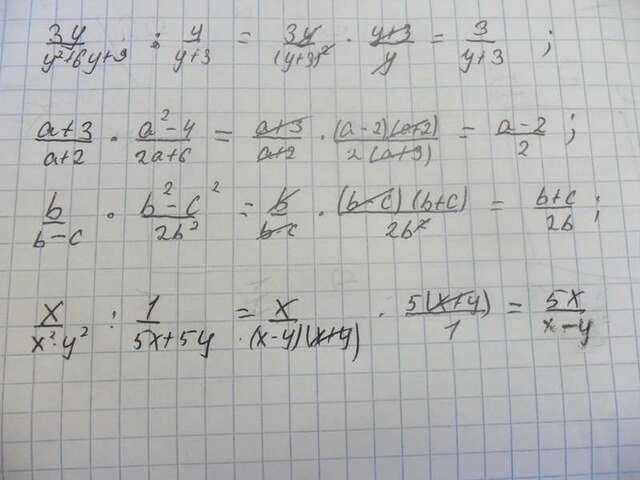 3y/(y²+6y+9) : y/(y+3) = 3y/(y+3)² · (y+3)/y = 3/(y+3) ;
(a+3)/(a+2) · (a²-4)/(2a+6) = (a+3)/(a+2) · (a-2)(a+2)/2(a+3) = (a-2)/2 ;
b/(b-c) · (b²-c²)/2b² = b/(b-c) · (b-c)(b+c)/2b² = (b+c)/2b ;
x/(x²-y²) : 1/(5x+5y) = x/(x-y)(x+y) · 5(x+y)/1 = 5x/(x-y)